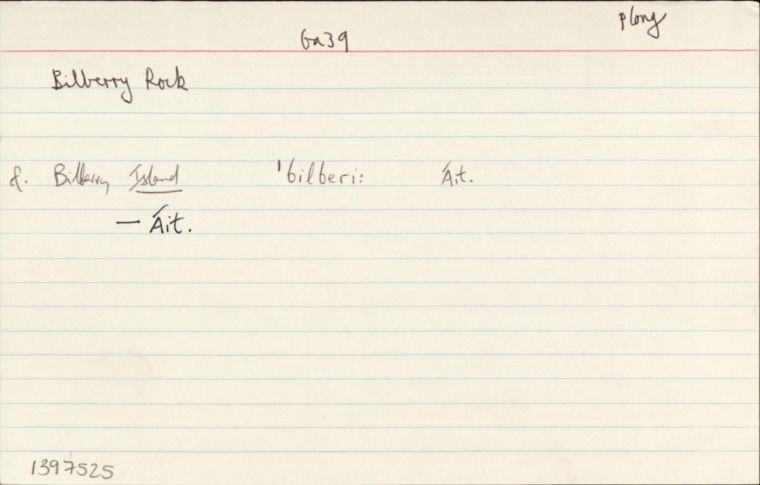 plong
Ga39
Bilberry Rock
f. Bilberry Island 'bilberi: Áit.
— Áit.
1397525